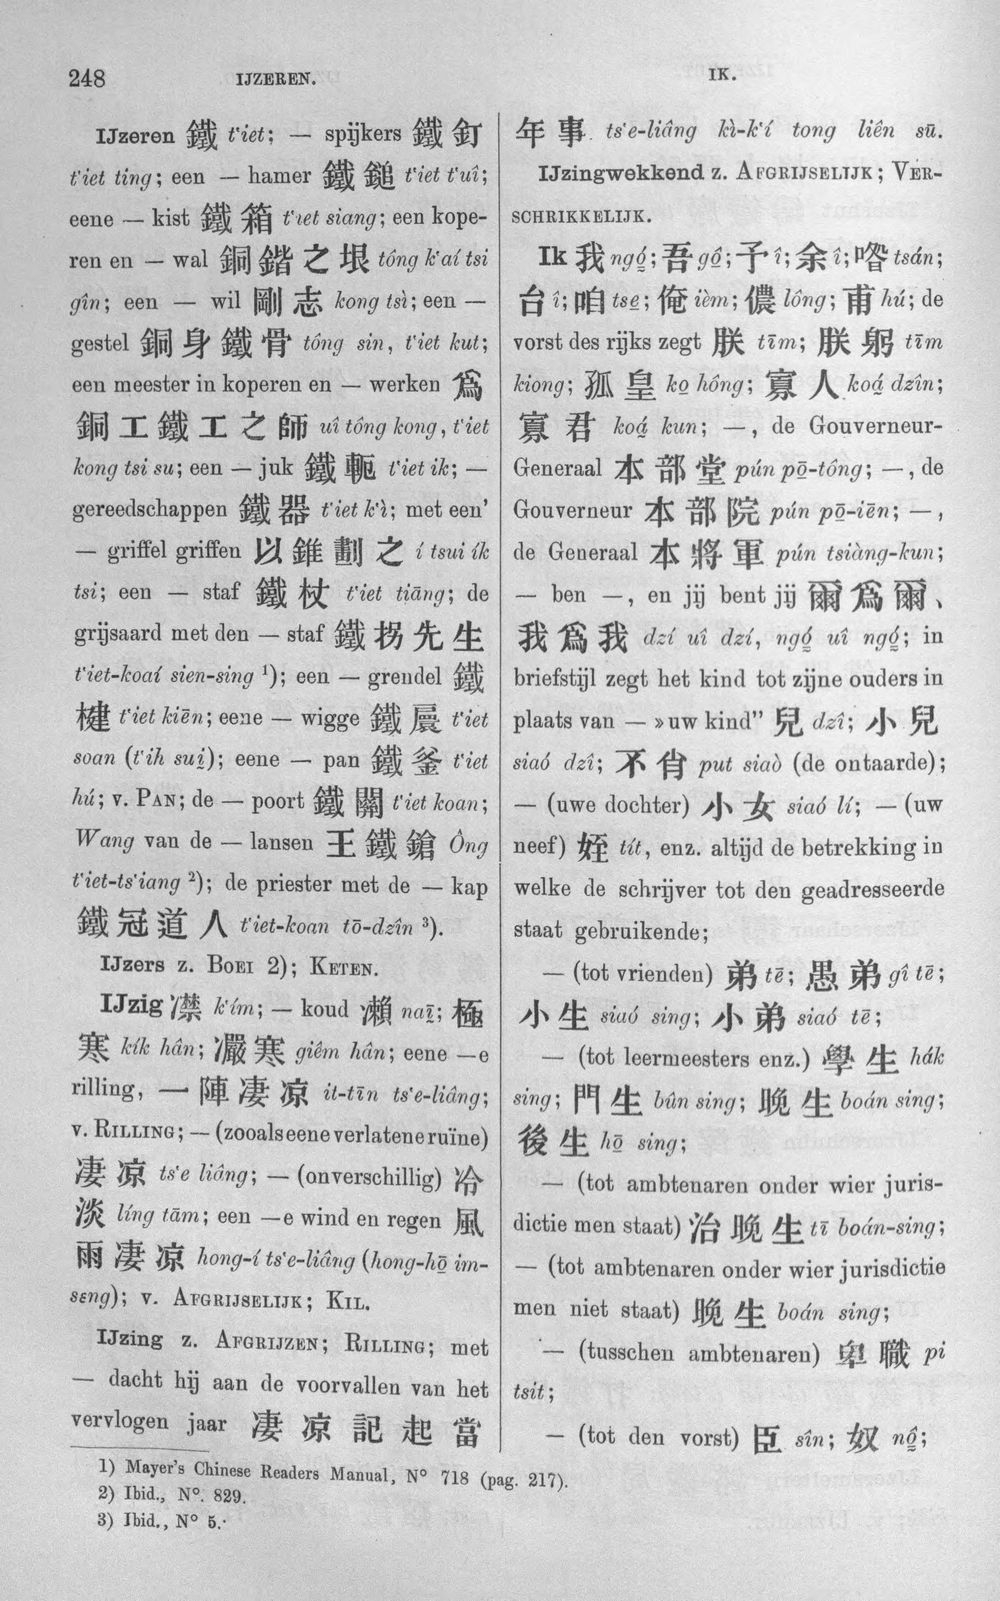 248
IJZEREN.
IK.
IJzeren 鐵 t‘iet; — spijkers 鐵釘
t‘iet ting; een — hamer 鐵鎚 t‘iet t‘uî;
eene — kist 鐵箱 t‘iet siang; een kope-
ren en — wal 銅鍇之垠 tông k‘aí tsi
gîn; een — wil 剛志 kong tsì; een —
gestel 銅身鐵骨 tông sin, t‘iet kut;
een meester in koperen en — werken 爲
銅工鐵工之師 uî tông kong, t‘iet
kong tsi su; een — juk 鐵軛 t‘iet ik; —
gereedschappen 鐵器 t‘iet k‘ì; met een’
— griffel griffen 以錐劃之 í tsui ík
tsi; een — staf 鐵杖 t‘iet tiāng; de
grijsaard met den — staf 鐵拐先生
t‘iet-koaí sien-sing ¹); een — grendel 鐵
楗 t‘iet kiēn; eene — wigge 鐵扆 t‘iet
soan (t‘ih suiⁿ); eene — pan 鐵釜 t‘iet
hú; v. PAN; de — poort 鐵關 t‘iet koan;
Wang van de — lansen 王鐵鎗 Ông
t‘iet-ts‘iang ²); de priester met de — kap
鐵冠道人 t‘iet-koan tō-dzîn ³).
IJzers z. BOEI 2); KETEN.
IJzig 凚 k‘ím; — koud 瀨 naī; 極
寒 kík hân; 凝寒 giêm hân; eene —e
rilling, 一陣凄凉 it-tīn ts‘e-liâng;
v. RILLING; — (zooals eene verlatene ruïne)
凄凉 ts‘e liâng; — (onverschillig) 冷
淡 líng tām; een —e wind en regen 風
雨凄凉 hong-í ts‘e-liâng (hong-hō im-
seng); v. AFGRIJSELIJK; KIL.
IJzing z. AFGRIJZEN; RILLING; met
— dacht hij aan de voorvallen van het
vervlogen jaar 凄凉記起當
年事 ts‘e-liâng kì-k‘í tong liên sū.
IJzingwekkend z. AFGRIJSELIJK; VER-
SCHRIKKELIJK.
Ik 我 ngó; 吾 gô; 予 î; 余 î; 喒 tsán;
台 î; 咱 tse; 俺 ièm; 儂 lông; 甫 hú; de
vorst des rijks zegt 朕 tīm; 朕躬 tīm
kiong; 孤皇 ko hông; 寡人 koá dzîn;
寡君 koá kun; —, de Gouverneur-
Generaal 本部堂 pún pō-tông; —, de
Gouverneur 本部院 pún pō-iēn; —,
de Generaal 本將軍 pún tsiàng-kun;
— ben —, en jij bent jij 爾爲爾、
我爲我 dzí uî dzí, ngó uî ngó; in
briefstijl zegt het kind tot zijne ouders in
plaats van — »uw kind” 兒 dzî; 小兒
siaó dzî; 不肖 put siaò (de ontaarde);
— (uwe dochter) 小女 siaó lí; — (uw
neef) 姪 tít, enz. altijd de betrekking in
welke de schrijver tot den geadresseerde
staat gebruikende;
— (tot vrienden) 弟 tē; 愚弟 gî tē;
小生 siaó sing; 小弟 siaó tē;
— (tot leermeesters enz.) 學生 hák
sing; 門生 bûn sing; 晚生 boán sing;
後生 hō sing;
— (tot ambtenaren onder wier juris-
dictie men staat) 治晚生 tī boán-sing;
— (tot ambtenaren onder wier jurisdictie
men niet staat) 晚生 boán sing;
— (tusschen ambtenaren) 卑職 pi
tsit;
— (tot den vorst) 臣 sîn; 奴 nô;
1) Mayer’s Chinese Readers Manual, N° 718 (pag. 217).
2) Ibid., N°. 829.
3) Ibid., N° 5.